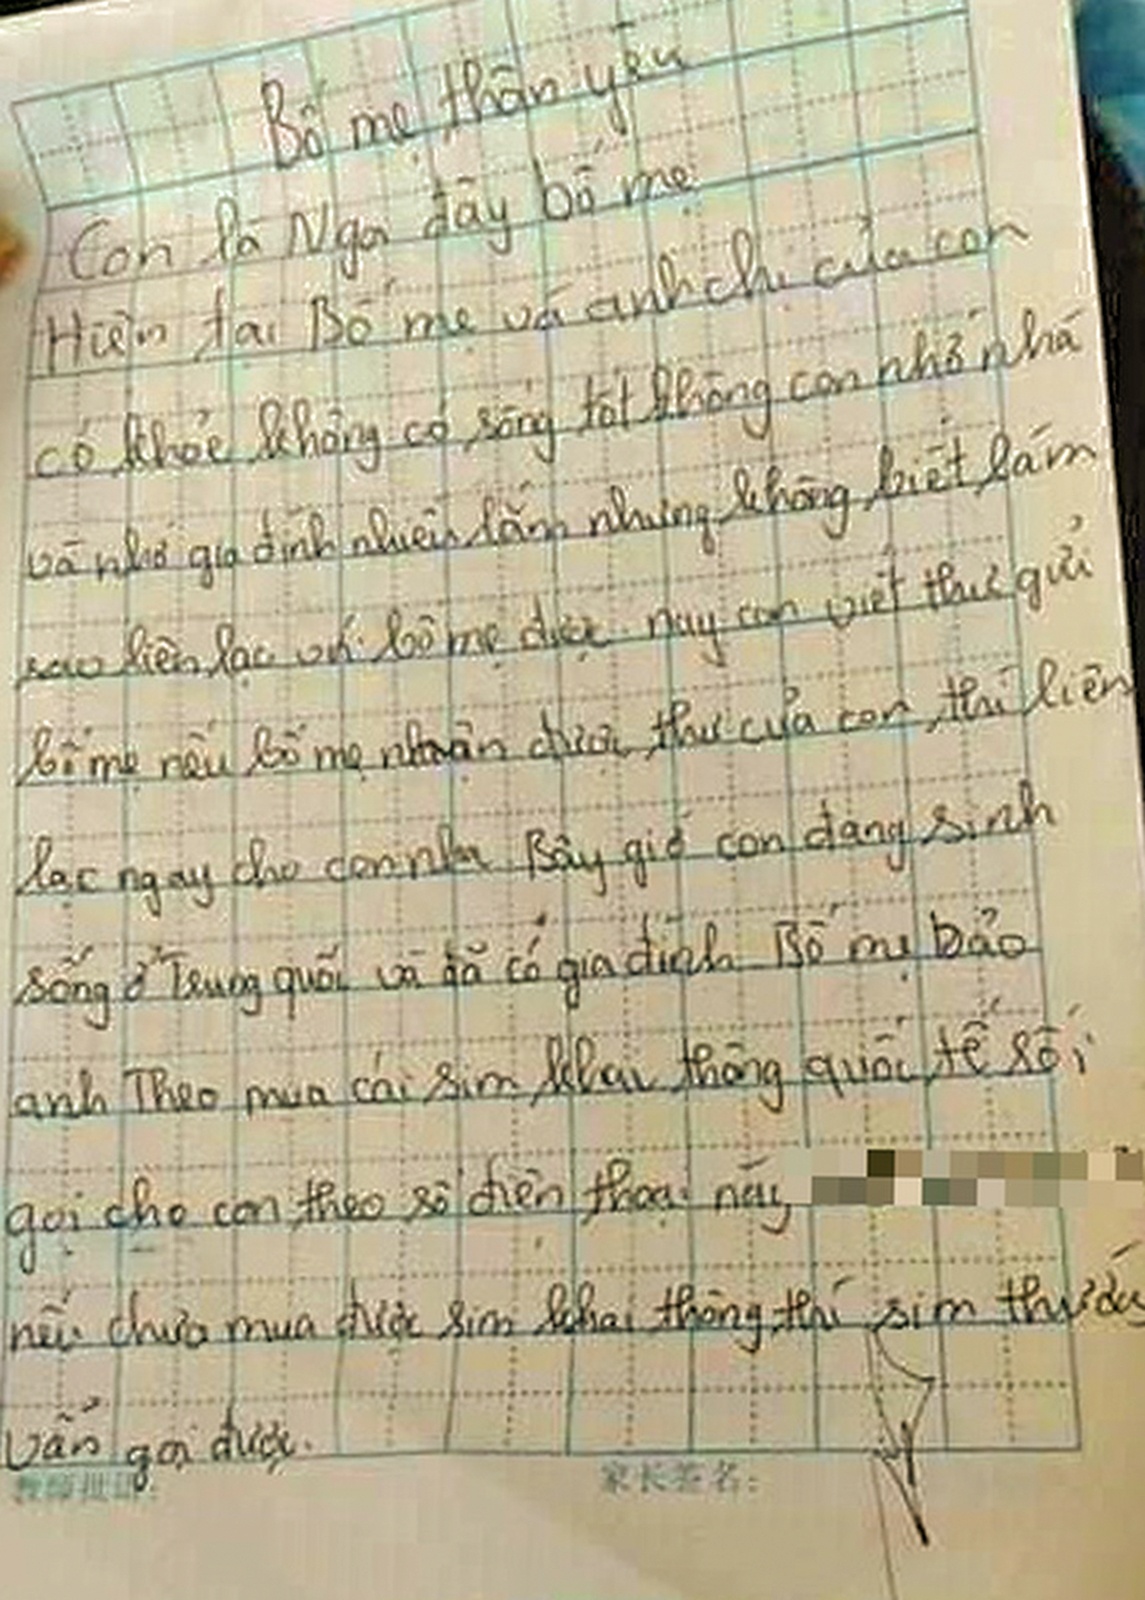 Bố mẹ thân yêu
Con là Nga đây bố mẹ
Hiện tại Bố mẹ và anh chị của con
có khỏe không có sống tốt không con nhớ nhà
và nhớ gia đình nhiều lắm nhưng không biết làm
sao liên lạc với bố mẹ được nay con viết thư gửi
bố mẹ nếu bố mẹ nhận được thư của con thì liên
lạc ngay cho con nha Bây giờ con đang sinh
sống ở Trung quốc và đã có gia đình Bố mẹ Bảo
anh Theo mua cái sim khai thông quốc tế rồi
gọi cho con theo số điện thoại này
nếu chưa mua được sim khai thông thì sim thường
vẫn gọi được.
家长签名: